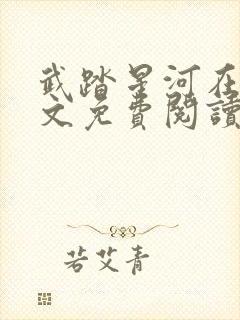 武踏星河在
文免費閱讀
若艾青